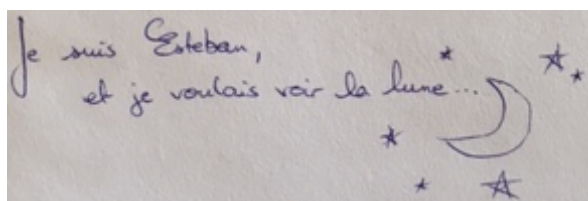 Je suis Esteban,
et je voulais voir la lune...